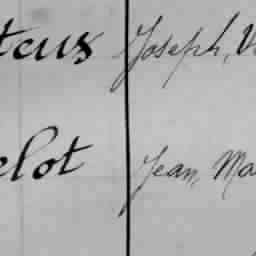 teus Joseph, V
elot Jean, Ma